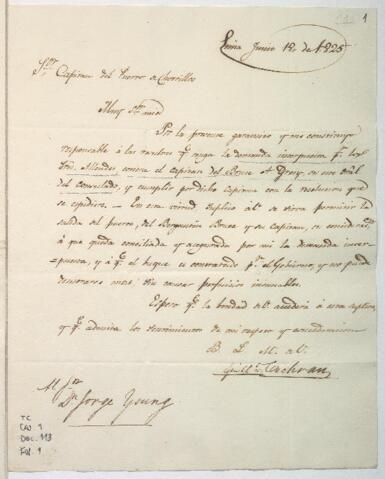 1
Lima Junio 12 de 1825
Sor. Capitan del Puerto de Chorrillos
Muy Sor. mio
Por la presente garantizo y me constituyo
responsable á las resultas qe. tenga la demanda interpuesta pr.
Allende contra el capitan del
del Consulado, y cumplir por dicho capitan con la resolucion que
se expidiere. En esta virtud suplico á V. se sirva permitir la
salida del puerto, del Bergantin y su capitan,
á que queda conciliada y asegurada por mi la demanda inter-
puesta, y á qe. el buque es contratado pr. el Gobierno, y no puede
demorarse mas, sin causar perjuicios
Espero qe. la bondad de V. accederá á esta suplica,
y qe. admita los sentimientos de mi respeto y
B. L. M. de V.
Guillo. Cochran
Al Sor.
Dn. Jorge Young
TC
CAJ 1
DOC. 113
Fol. 1